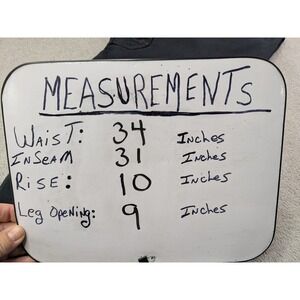 MEASUREMENTS
WAIST: 34 Inches
INSEAM 31 Inches
RISE: 10 Inches
Leg Opening: 9 Inches